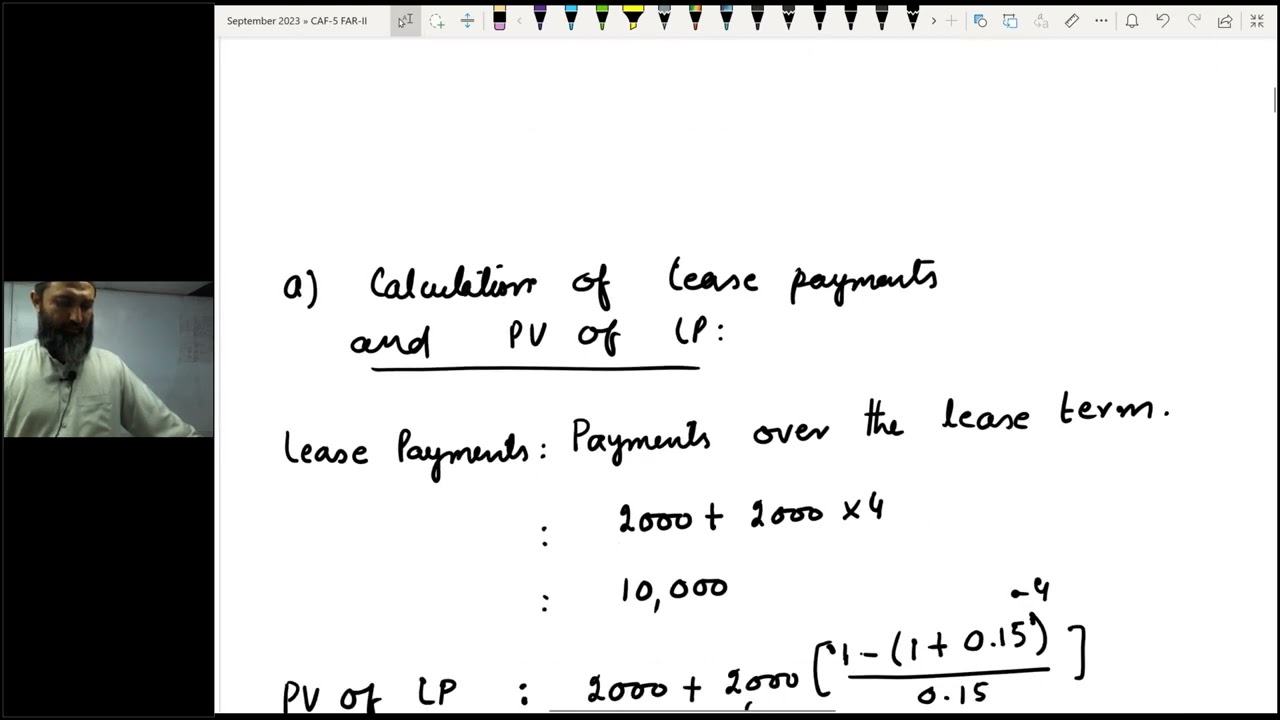 September 2023 » CAF-5 FAR-II
a) Calculation of lease payments
and PV of LP:
Lease Payments: Payments over the lease term.
: 2000 + 2000 × 4
: 10,000
PV of LP : 2000 + 2,000 [1 - (1 + 0.15)^-4 / 0.15]